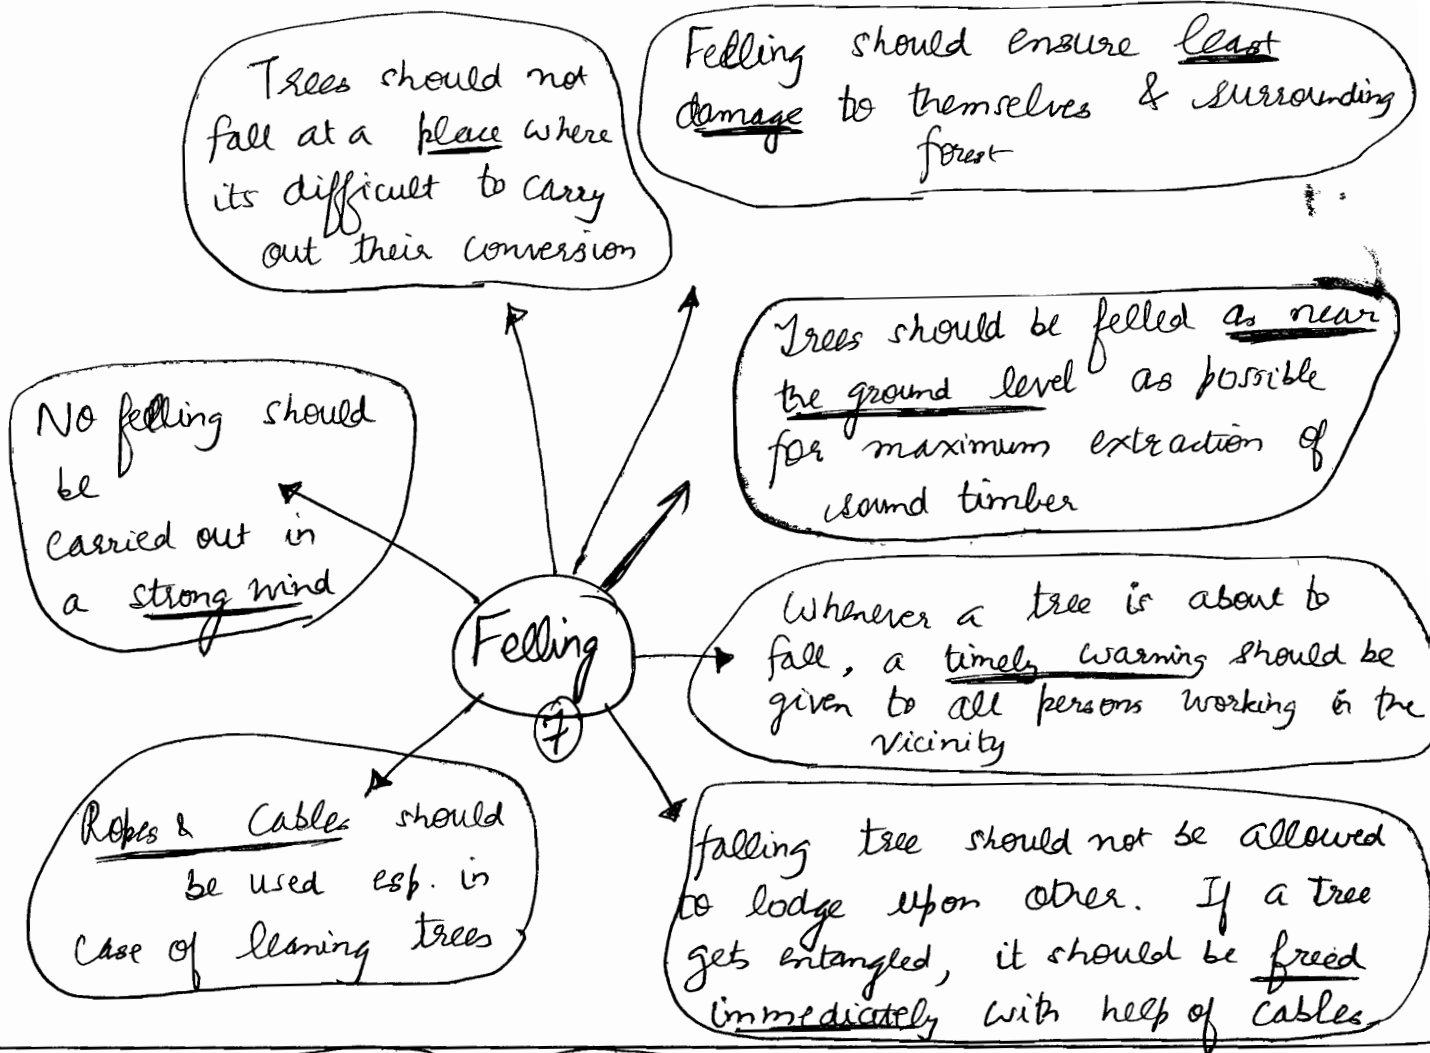 Trees should not
fall at a place where
its difficult to carry
out their conversion
Felling should ensure least
damage to themselves & surrounding
forest
Trees should be felled as near
the ground level as possible
for maximum extraction of
sound timber
No felling should
be
carried out in
a strong wind
Felling
7
Whenever a tree is about to
fall, a timely warning should be
given to all persons working in the
vicinity
Ropes & Cables should
be used esp. in
case of leaning trees
falling tree should not be allowed
to lodge upon other. If a tree
gets entangled, it should be freed
immediately with help of cables